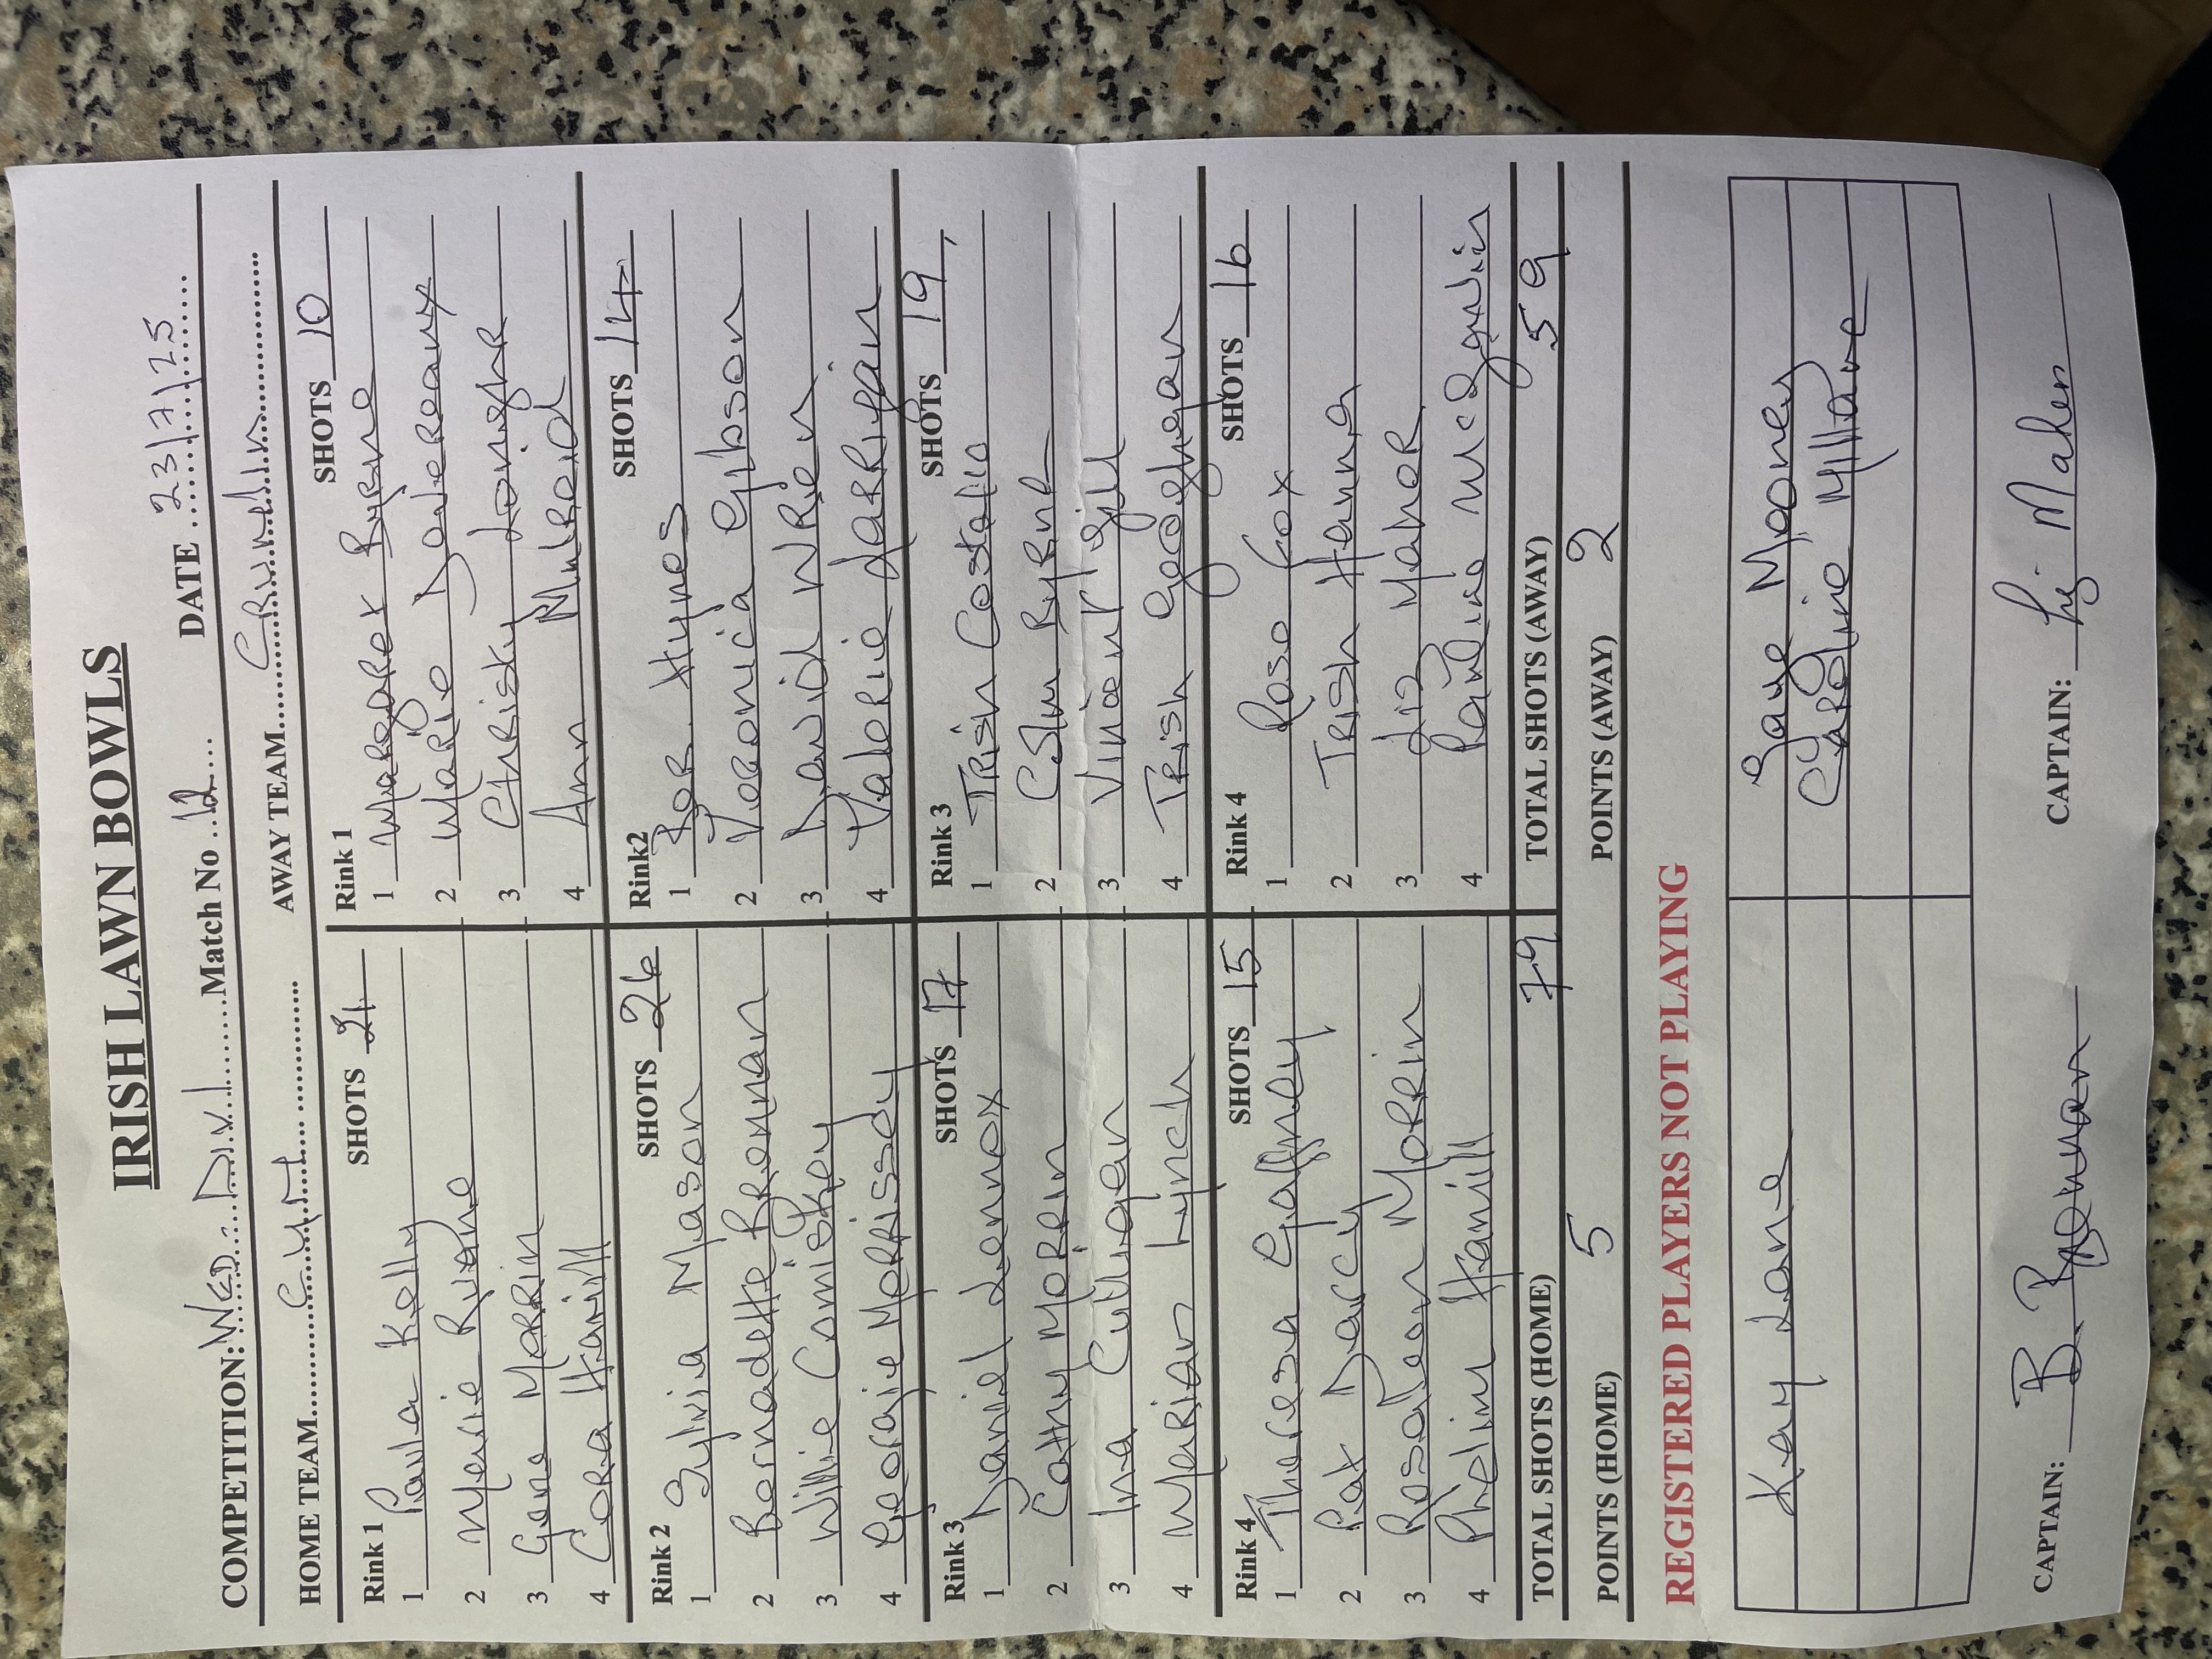 IRISH LAWN BOWLS
COMPETITION: WED. Div 1 Match No 12 DATE 23/7/25
HOME TEAM AWAY TEAM Crumlin
Rink 1 SHOTS 21
1 Paula Kelly
2 Ruane
3 Gene MORRin
4 CORA Hamill
Rink 1 SHOTS 10
1 MARgaRet ByRne
2 MaRie DeveReaux
3 ChRisty
4 Ann MulReid
Rink 2 SHOTS 26
1 Sylvia Mason
2 BeRnadette BRennan
3 Willie Comiskey
4 Georgie MoRRissey
Rink2 SHOTS 14
1 Hynes
2 VeRonicia Gibson
3 David WRen
4 ValeRie LaRRigan
Rink 3 SHOTS 17
1 Daniel Lennox
2 Cathy MORRin
3 Ina Culligan
4 MaRian Lynch
Rink 3 SHOTS 19
1 TRish Costello
2 ByRne
3 Vincent Gill
4 TRish Geoghegan
Rink 4 SHOTS 15
1 Theresa Gaffney
2 Pat Darcy
3 Rosaleen MoRRin
4 Phelim Hamill
Rink 4 SHOTS 16
1 Rose Fox
2 TRish Hanna
3 Liz MaheR
4 Pauline
TOTAL SHOTS (HOME) 79 TOTAL SHOTS (AWAY) 59
POINTS (HOME) 5 POINTS (AWAY) 2
REGISTERED PLAYERS NOT PLAYING
Kay Lane Gaye Mooney
CaRoline Millane
CAPTAIN: B. Brennan CAPTAIN: Maher